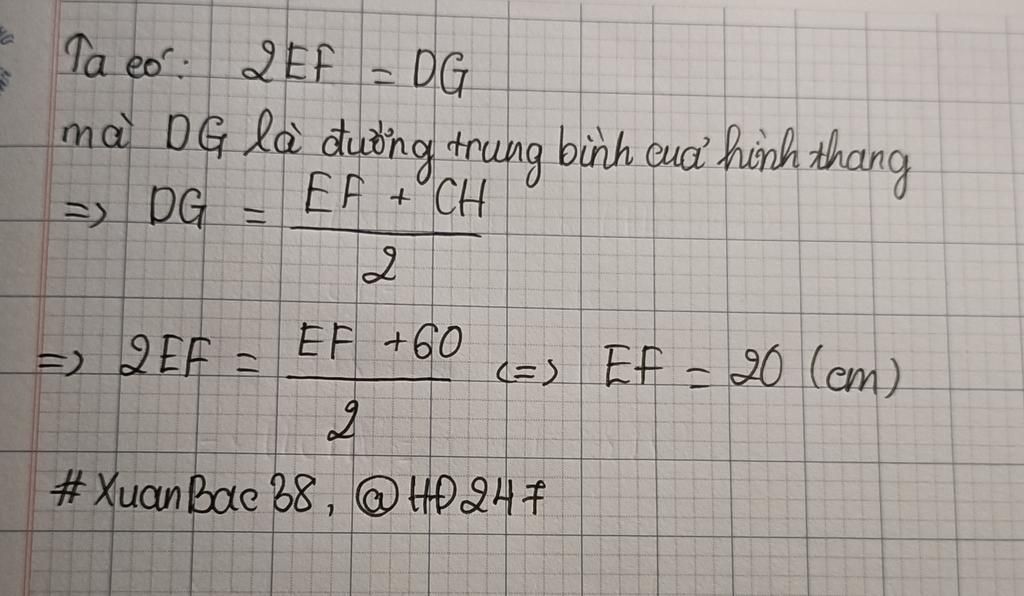 Ta có: 2EF = DG
mà DG là đường trung bình của hình thang
=> DG = (EF + CH) / 2
=> 2EF = (EF + 60) / 2 <=> EF = 20 (cm)
#XuanBac38, @HĐ247